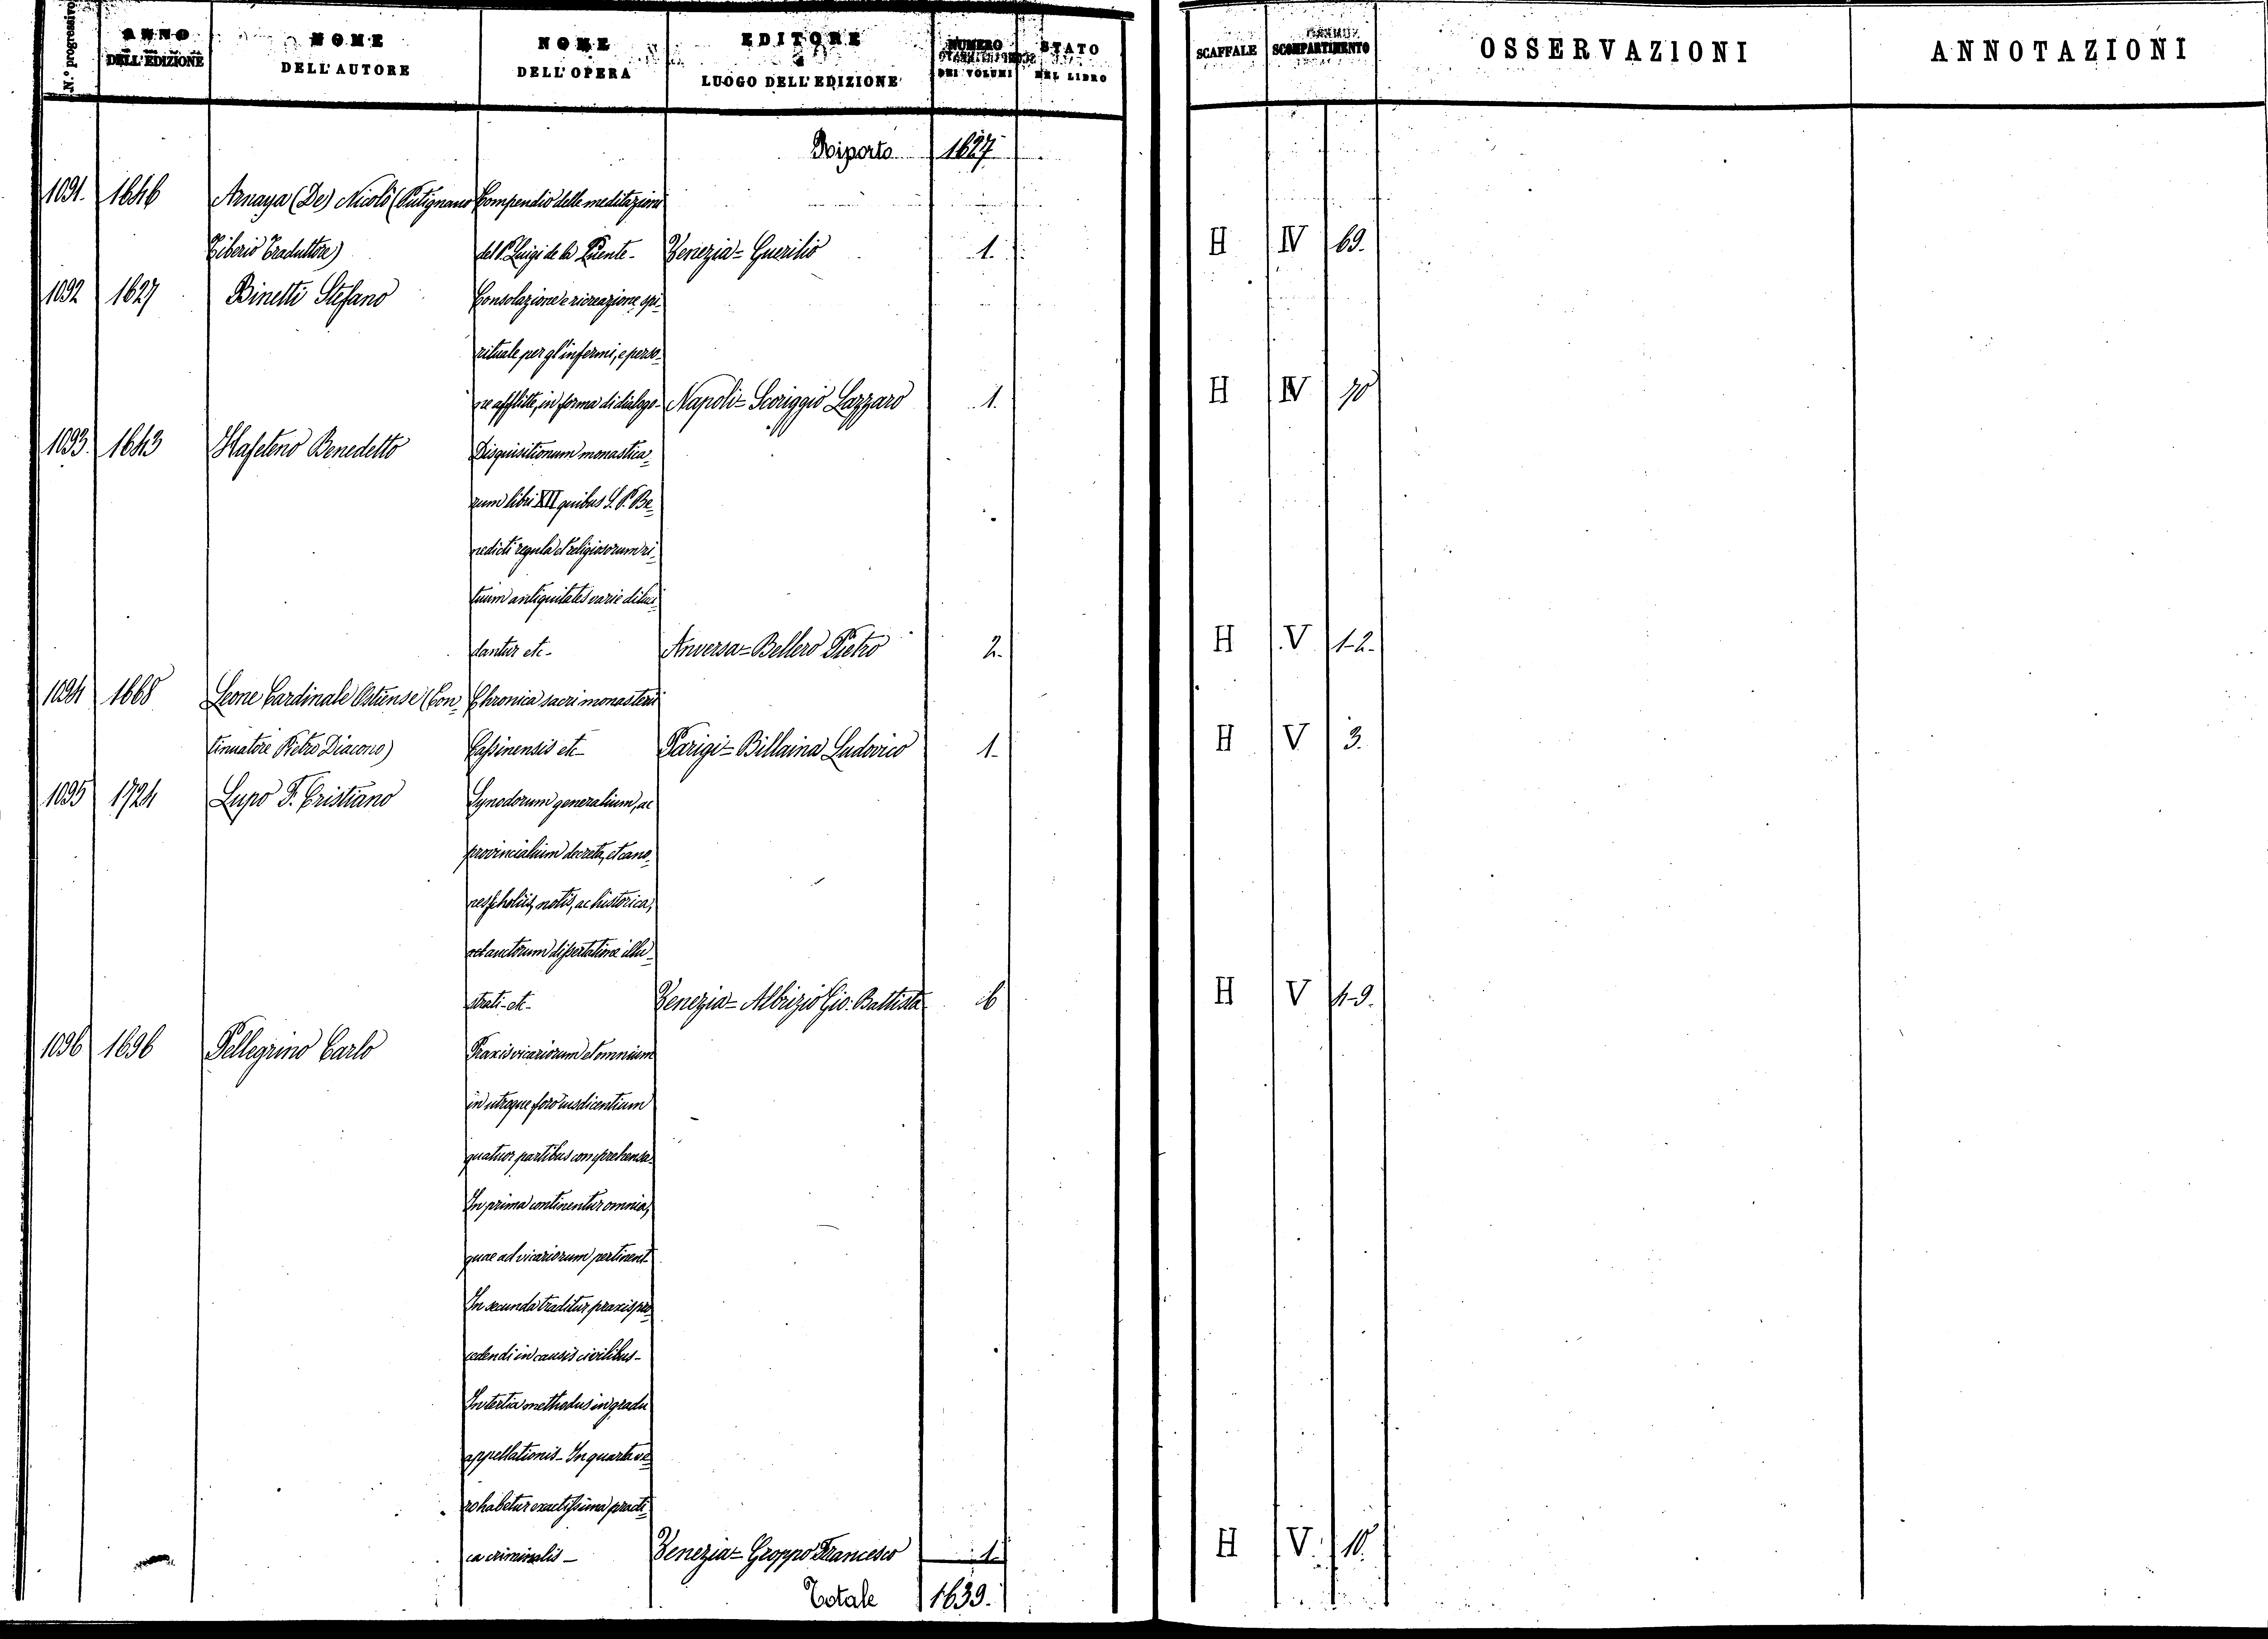 N.º progressivo ANNO DELL'EDIZIONE NOME DELL'AUTORE NOME DELL'OPERA EDITORE e LUOGO DELL'EDIZIONE NUMERO DEI VOLUMI STATO DEL LIBRO SCAFFALE SCOMPARTIMENTO OSSERVAZIONI ANNOTAZIONI
Riporto 1627
1091. 1646 Arnaya (De) Nicolò (Putignano Compendio delle meditazioni
Tiberio Traduttore) del P. Luigi de la Puente- Venezia= Guerilio 1. H IV 69.
1092 1627 Binetti Stefano Consolazione e ricreazione spi-
rituale per gl'infermi, e perso-
ne afflitte, in forma di dialogo- Napoli= Scoriggio Lazzaro 1. H IV 70
1093. 1643 Hafeteno Benedetto Disquisitionum monastica-
rum libri XII quibus S. P. Be-
nedicti regula et religiosorum ri-
tuum antiquitates varie diluci-
dantur etc- Anversa= Bellero Pietro 2. H V 1-2.
1094 1668 Leone Cardinale Ostiense (Con- Chronica sacri monasterii
tinuatore Pietro Diacono) Cassinensis etc- Parigi= Billaina Ludovico 1- H V 3.
1095 1724 Lupo F. Cristiano Synodorum generalium, ac
provincialium decreta, et cano-
nes scholiis, notis, ac historica,
actauctorum dissertatione illu-
strati-etc- Venezia= Albrizio Gio. Battista 6 H V 4-9.
1096 1696 Pellegrino Carlo Praxis vicariorum et omnium
in utroque foro iusdicentium
quatuor partibus comprehensa-
In prima continentur omnia,
quae ad vicariorum pertinent-
In secunda traditur praxis pro-
cedendi in causis civilibus-
In tertia methodus in gradu
appellationis- In quarta ve-
ro habetur exactissima practi-
ca criminalis- Venezia= Groppo Francesco 1. H V 10.
Totale 1639.